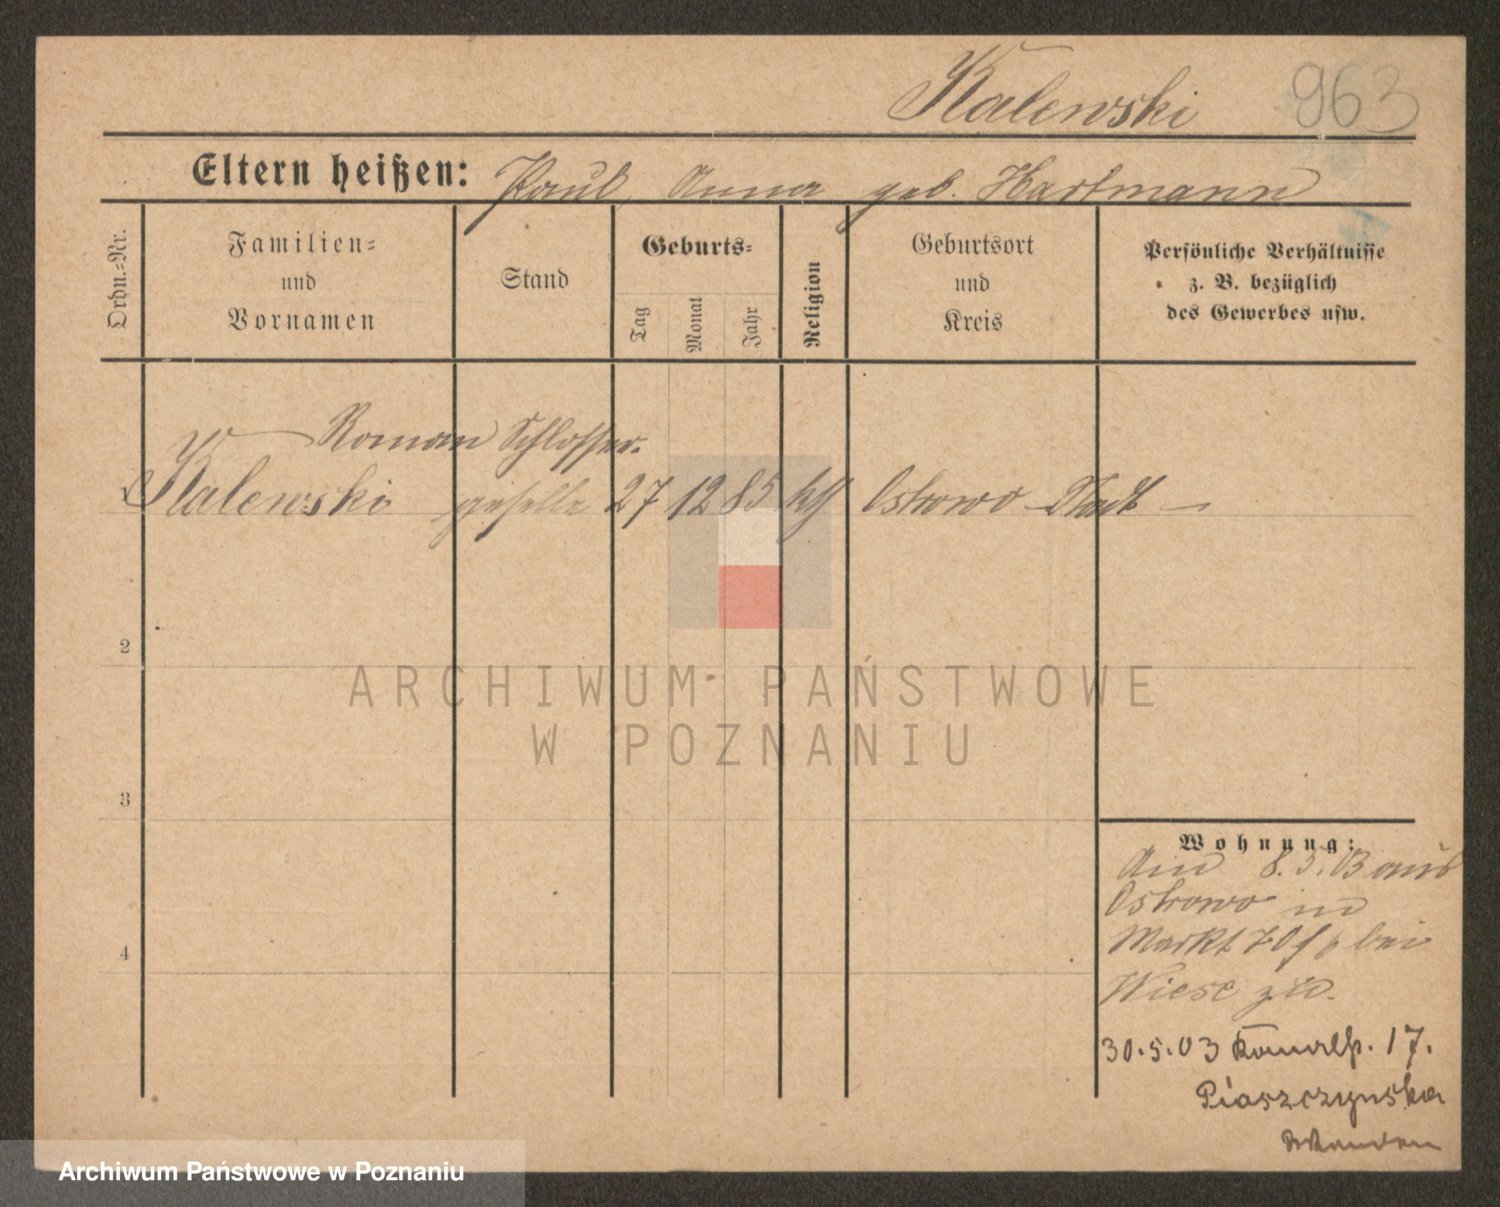 Kalewski 963
Eltern heißen: Paul, Anna geb. Hartmann
Ordn.=Nr.
Familien=
und
Vornamen
Stand
Geburts=
Tag
Monat
Jahr
Religion
Geburtsort
und
Kreis
Persönliche Verhältnisse
z. B. bezüglich
des Gewerbes usw.
Roman Schlosser-
1 Kalewski geselle 27 12 85 kth Ostrowo - Stadt -
2
ARCHIWUM PAŃSTWOWE
W POZNANIU
3
4
Wohnung:
8.5.03 aus
Ostrowo in
Markt bei
Wiese zu.
30.5.03 Kanalstr. 17.
Piaszczynska
Archiwum Państwowe w Poznaniu